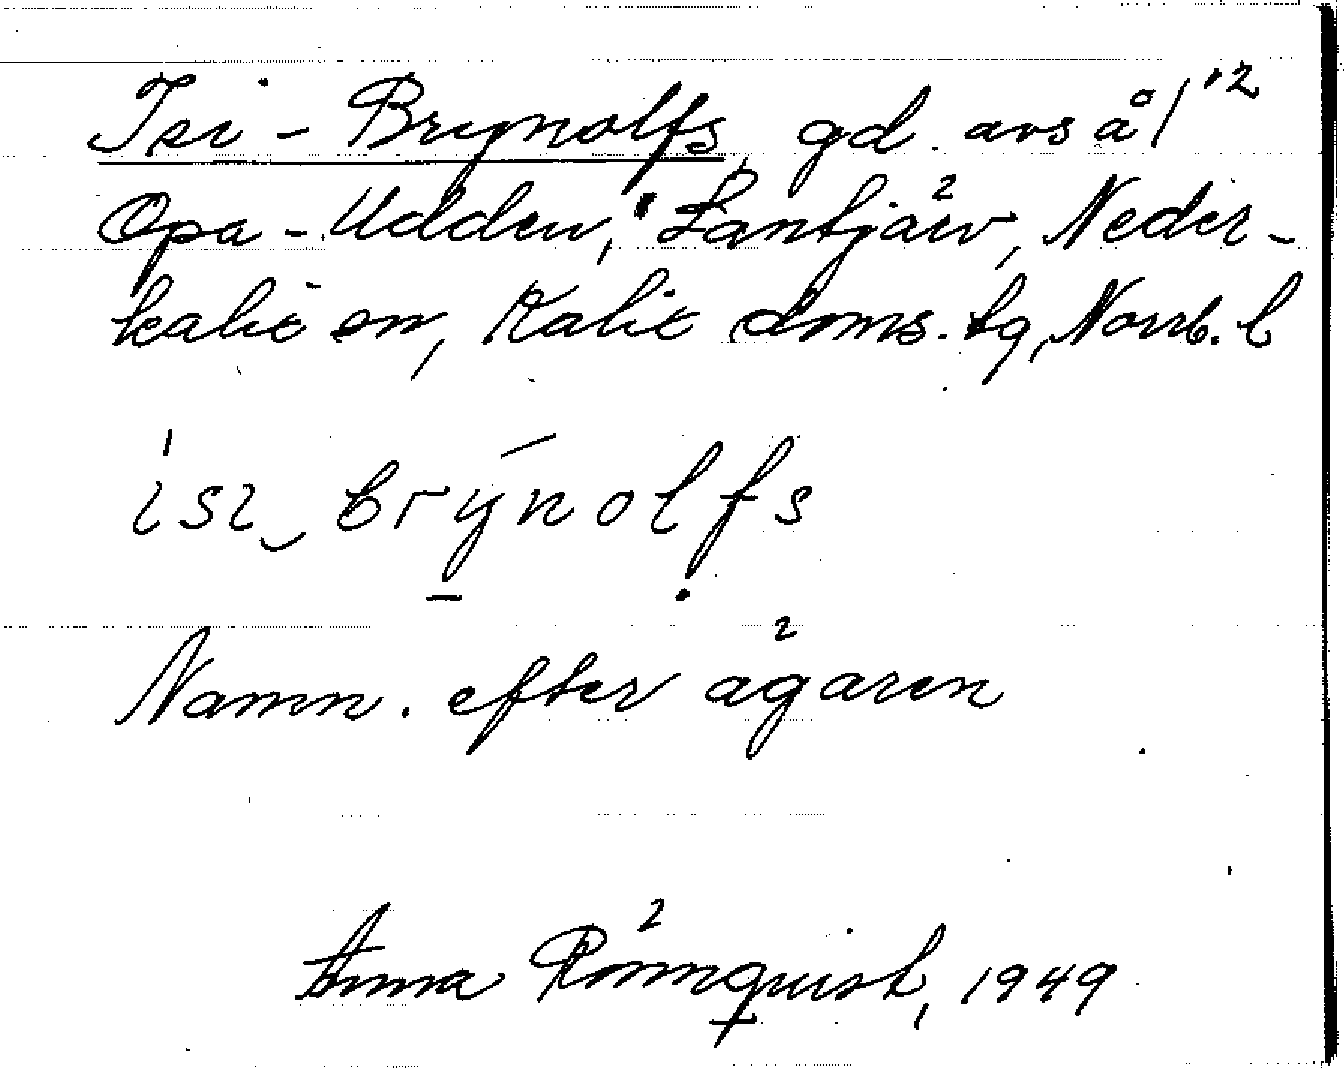 Isi-Brynolfs, gd. avs å l 12
Opa-Udden, Säntjärv, Neder-
kalix sn, Kalix doms. tg, Norrb. l
isi brynolfs
Namn. efter ägaren
Anna Rönnquist, 1949